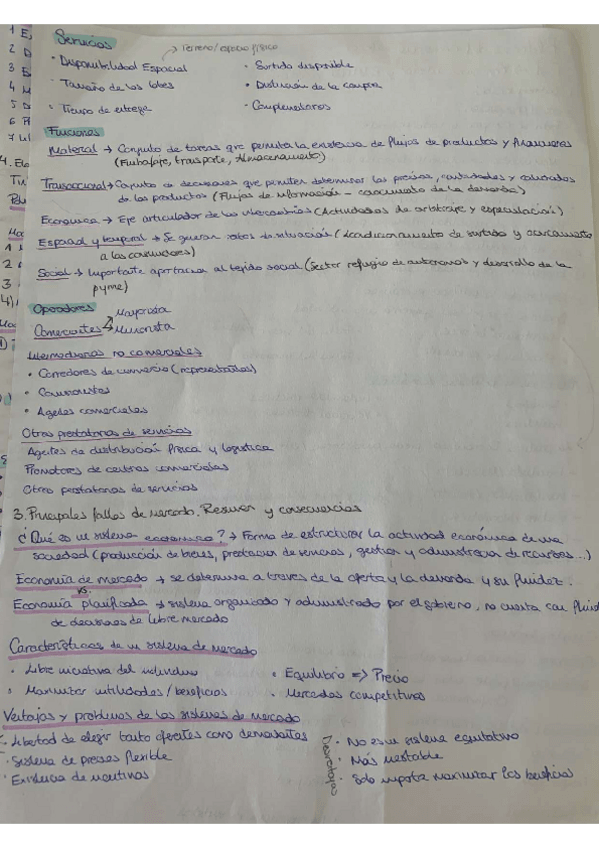 Servicios
→ Terreno/espacio físico
· Disponibilidad Espacial
· Surtido disponible
· Tamaño de los lotes
· Distribución de la compra
· Tiempo de entrega
· Complementarios
Funciones
Material → Conjunto de tareas que permiten la existencia de flujos de productos y financieros
(Embalaje, transporte, almacenamiento)
Transaccional → Conjunto de decisiones que permiten determinar los precios, cantidades y
de los productos (Flujos de información - conocimiento de la demanda)
Económica → Eje articulador de los intercambios (Actividades de arbitraje y especulación)
Espacial y temporal → Se generan rentas de situación (Acondicionamiento de surtido y acercamiento
a los consumidores)
Social → Importante aportación al tejido social (Sector refugio de autónomos y desarrollo de la
pyme)
Operadores
Comerciantes
Mayorista
Minorista
Intermediarios no comerciales
· Corredores de comercio (representantes)
· Comisionistas
· Agentes comerciales
Otros prestatarios de servicios
Agentes de distribución física y logística
Promotores de centros comerciales
Otros prestatarios de servicios
3. Principales fallos de mercado. Resumen y consecuencias
¿Qué es un sistema economico? → Forma de estructurar la actividad económica de una
sociedad (producción de bienes, prestación de servicios, gestión y administración de recursos...)
Economía de mercado → se determina a traves de la oferta y la demanda y su fluidez.
vs.
Economía planificada → sistema organizado y administrado por el gobierno, no cuenta con fluidez
de decisiones de libre mercado
Características de un sistema de mercado
· Libre iniciativa del individuo
· Equilibrio => Precio
· Maximizar utilidades/beneficios
· Mercados competitivos
Ventajas y problemas de los sistemas de mercado
· Libertad de elegir tanto oferentes como demandantes
· Sistema de precios flexible
· Existencia de incentivos
Desventajas
· No es un sistema equitativo
· Más inestable
· Solo importa maximizar los beneficios